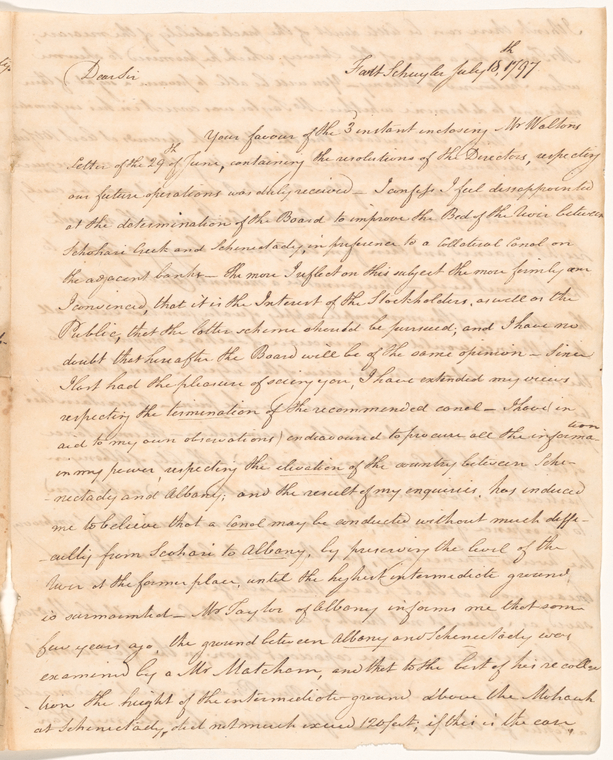 Dear Sir
Fort Schuyler July 18th, 1797
Your favour of the 3 instant inclosing Mr Waltons
Letter of the 29th of June, containing the resolutions of the Directors, respecting
our future operations was duly received — I confess I feel dissappointed
at the determination of the Board to improve the Bed of the River between
Schohari Creek and Schenectady, in preference to a Collateral Canal on
the adjacent banks — the more I reflect on this subject the more firmly am
I convinced, that it is the Interest of the Stockholders, as well as the
Public, that the latter scheme should be pursued; and I have no
doubt that hereafter the Board will be of the same opinion — Since
I last had the pleasure of seeing you, I have extended my views
respecting the termination of the recommended canal — I have (in
aid to my own observations) endeavoured to procure all the information
in my power, respecting the elevation of the country between Sche-
-nectady and Albany; and the result of my enquiries, has induced
me to believe that a Canal may be conducted without much diffi-
-culty from Scohari to Albany, by preserving the level of the
River at the former place, until the highest intermediate ground
is surmounted — Mr Taylor of Albany informs me that som
few years ago, the ground between Albany and Schenectady was
examined by a Mr Matcham, and that to the best of his recollec
-tion the height of the intermediate ground above the Mohawk
at Schenectady, did not much exceed 120 feet; if this is the case,